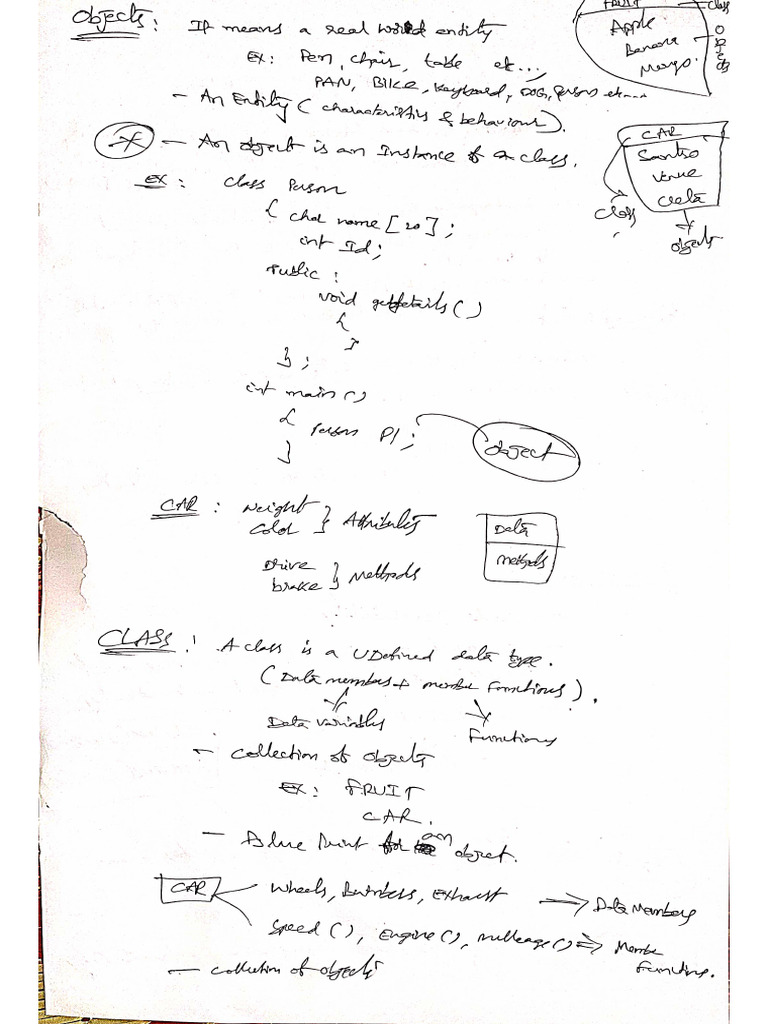 Objects : It means a real world entity
Ex: Pen, chair, table etc...,
PAN, BIKE, Keyboard, DOG, persons etc
- An Entity (characteristics & behaviours).
* - An object is an Instance of a class.
Ex : class Person
{ char name [20] ;
int Id ;
Public :
void getdetails ()
{
}
} ;
int main ()
{ Person P1 ;
}
object
FRUIT
class
Apple
Banana
Mango.
Objects
CAR
Santro
Venue
Creta
class
objects
CAR : Weight
Color } Attributes
Drive
brake } Methods
Data
methods
CLASS : A class is a UDefined data type.
(Data members + member Functions).
Data variables
Functions
- collection of objects
Ex : FRUIT
CAR.
- Blue Print for an object.
CAR
Wheels, Bumbers, Exhaust => Data Members
Speed (), Engine (), milleage () => Member
Functions.
- collection of objects